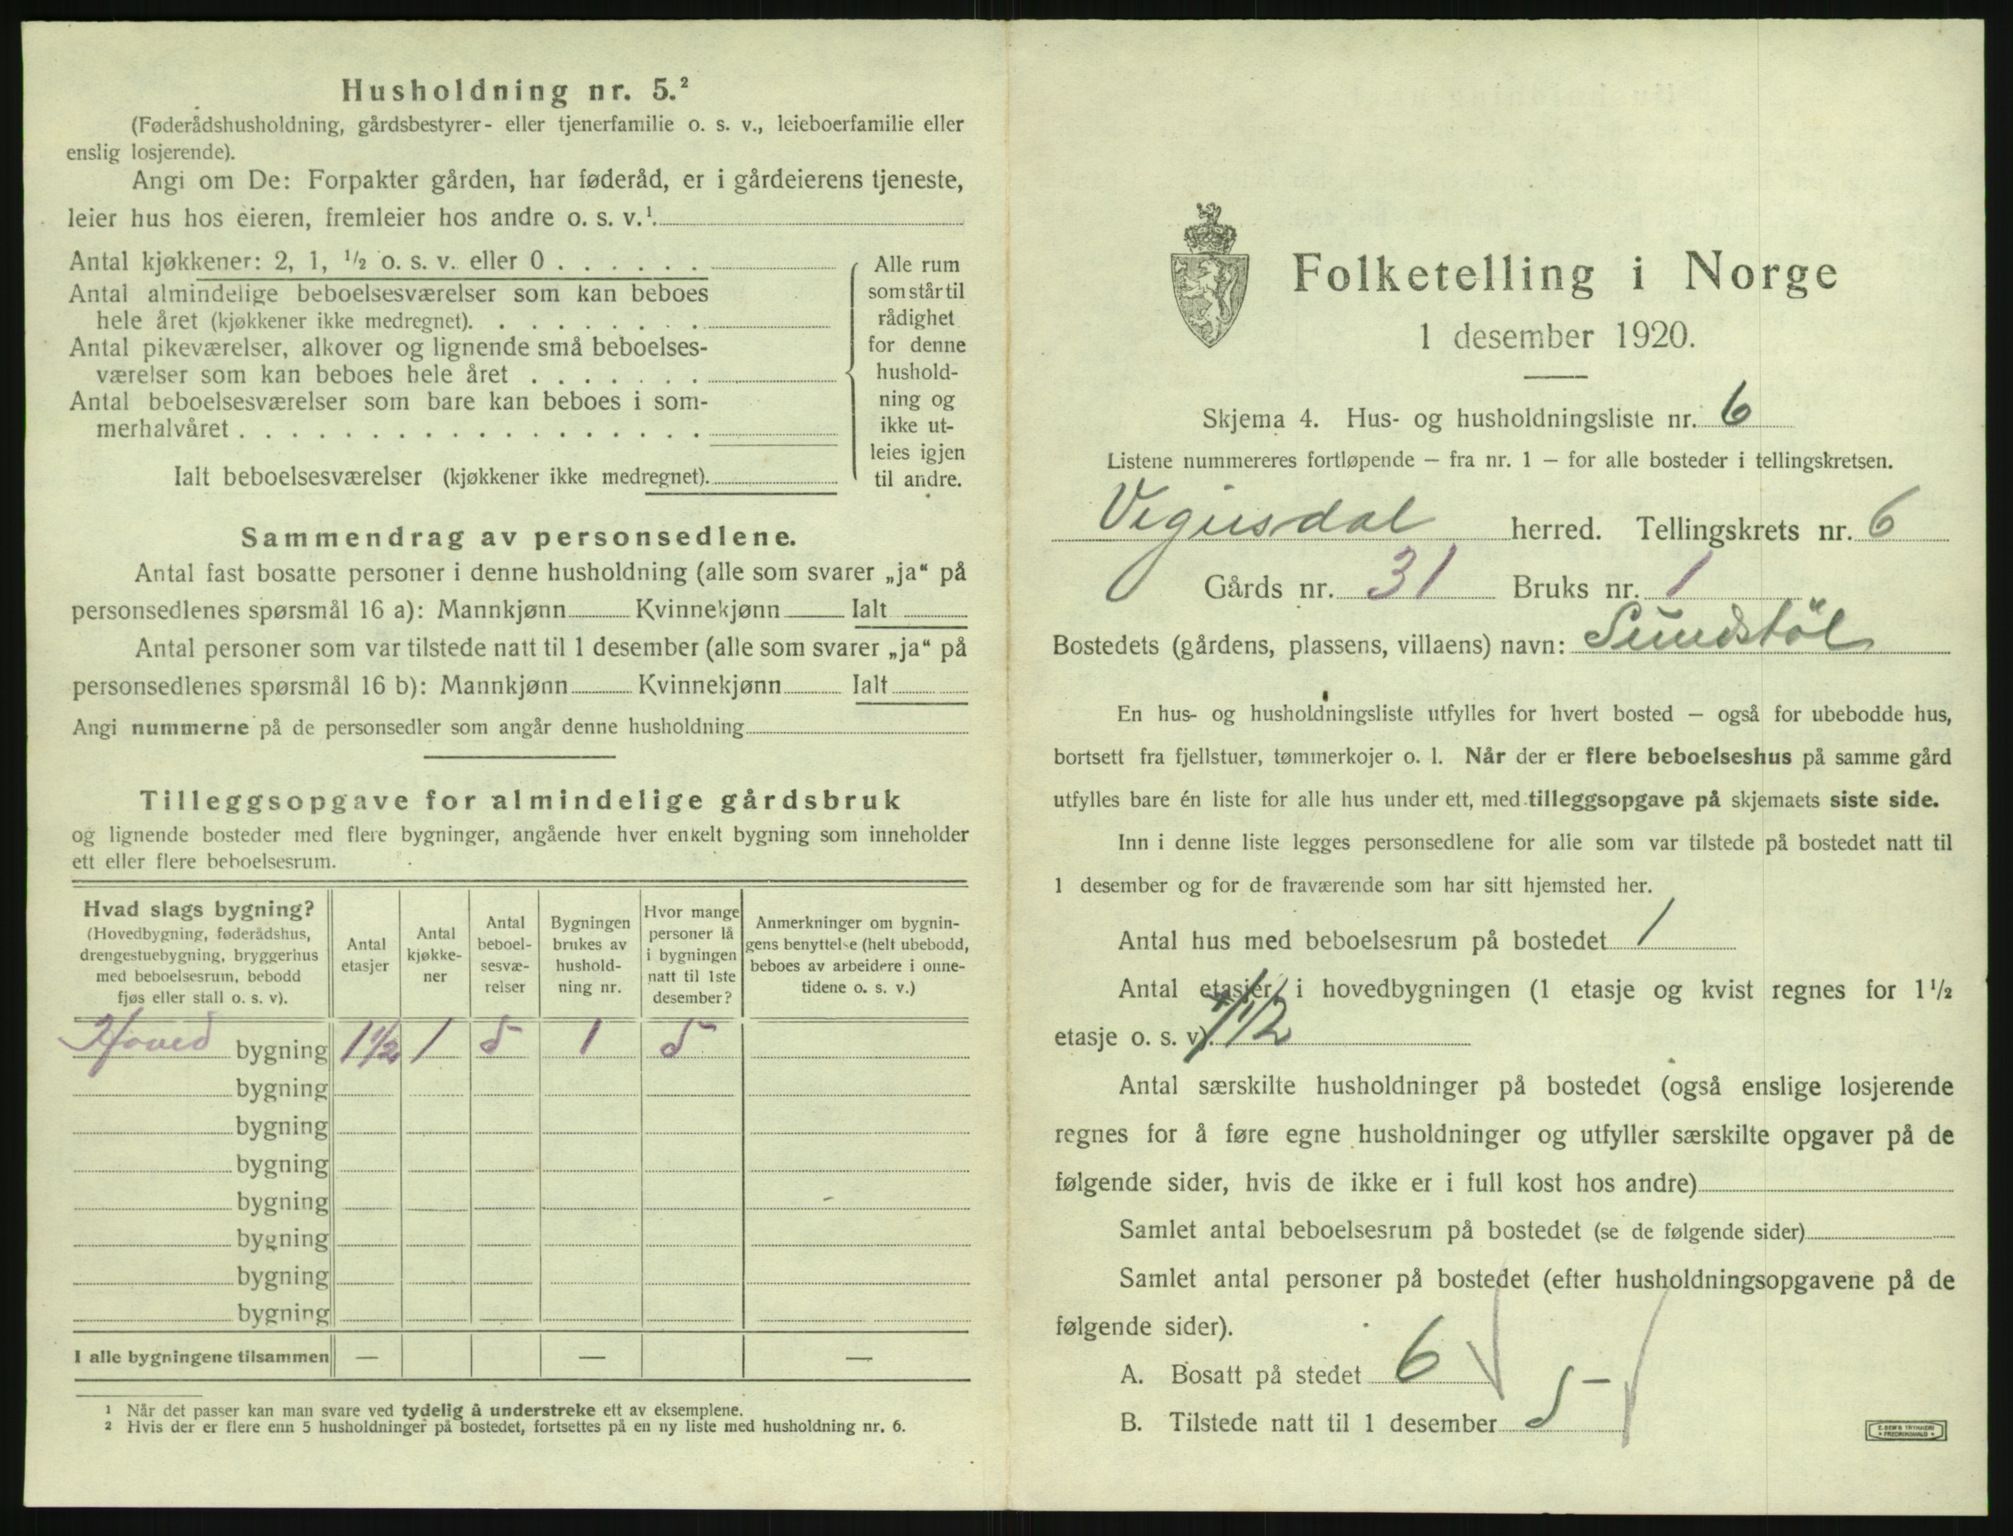 Husholdning nr. 5.²
(Føderådshusholdning, gårdsbestyrer- eller tjenerfamilie o. s. v., leieboerfamilie eller
enslig losjerende).
Angi om De: Forpakter gården, har føderåd, er i gårdeierens tjeneste,
leier hus hos eieren, fremleier hos andre o. s. v.¹
Antal kjøkkener: 2, 1, ½ o. s. v. eller 0 . . . . . .
Antal almindelige beboelsesværelser som kan beboes
hele året (kjøkkener ikke medregnet). . . . . . . . .
Antal pikeværelser, alkover og lignende små beboelses-
værelser som kan beboes hele året . . . . . . .
Antal beboelsesværelser som bare kan beboes i som-
merhalvåret . . . . . . . . . . . . . . . . . .
Ialt beboelsesværelser (kjøkkener ikke medregnet).
Alle rum
som står til
rådighet
for denne
hushold-
ning og
ikke ut-
leies igjen
til andre.
Sammendrag av personsedlene.
Antal fast bosatte personer i denne husholdning (alle som svarer „ja“ på
personsedlenes spørsmål 16 a): Mannkjønn Kvinnekjønn Ialt
Antal personer som var tilstede natt til 1 desember (alle som svarer „ja“ på
personsedlenes spørsmål 16 b): Mannkjønn Kvinnekjønn Ialt
Angi nummerne på de personsedler som angår denne husholdning
Tilleggsopgave for almindelige gårdsbruk
og lignende bosteder med flere bygninger, angående hver enkelt bygning som inneholder
ett eller flere beboelsesrum.
Hvad slags bygning?
(Hovedbygning, føderådshus,
drengestuebygning, bryggerhus
med beboelsesrum, bebodd
fjøs eller stall o. s. v).
Antal
etasjer
Antal
kjøkke-
ner
Antal
beboel-
sesvæ-
relser
Bygningen
brukes av
hushold-
ning nr.
Hvor mange
personer lå
i bygningen
natt til 1ste
desember?
Anmerkninger om bygnin-
gens benyttelse (helt ubebodd,
beboes av arbeidere i onne-
tidene o. s. v.)
Hoved bygning 1½ 1 5 1 5
bygning
bygning
bygning
bygning
bygning
bygning
bygning
I alle bygningene tilsammen — — —
¹ Når det passer kan man svare ved tydelig å understreke ett av eksemplene.
² Hvis der er flere enn 5 husholdninger på bostedet, fortsettes på en ny liste med husholdning nr. 6.
Folketelling i Norge
1 desember 1920.
Skjema 4. Hus- og husholdningsliste nr. 6
Listene nummereres fortløpende — fra nr. 1 — for alle bosteder i tellingskretsen.
Vegusdal herred. Tellingskrets nr. 6
Gårds nr. 31 Bruks nr. 1
Bostedets (gårdens, plassens, villaens) navn: Sundstöl
En hus- og husholdningsliste utfylles for hvert bosted — også for ubebodde hus,
bortsett fra fjellstuer, tømmerkojer o. l. Når der er flere beboelseshus på samme gård
utfylles bare én liste for alle hus under ett, med tilleggsopgave på skjemaets siste side.
Inn i denne liste legges personsedlene for alle som var tilstede på bostedet natt til
1 desember og for de fraværende som har sitt hjemsted her.
Antal hus med beboelsesrum på bostedet 1
Antal etasjer i hovedbygningen (1 etasje og kvist regnes for 1½
etasje o. s. v). 1½
Antal særskilte husholdninger på bostedet (også enslige losjerende
regnes for å føre egne husholdninger og utfyller særskilte opgaver på de
følgende sider, hvis de ikke er i full kost hos andre)
Samlet antal beboelsesrum på bostedet (se de følgende sider)
Samlet antal personer på bostedet (efter husholdningsopgavene på de
følgende sider).
A. Bosatt på stedet 6
B. Tilstede natt til 1 desember 5